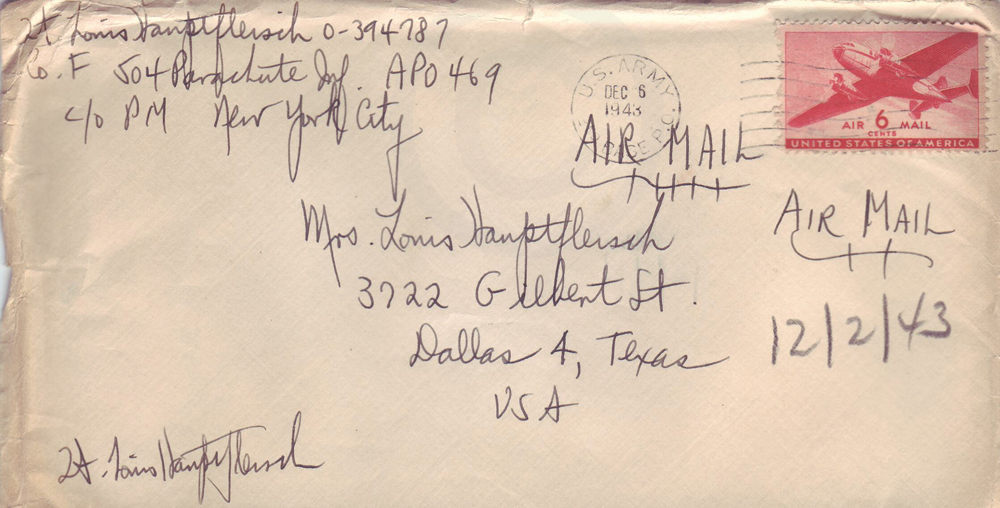 Lt. Louis Hauptfleisch O-394787
Co. F 504 Parachute Inf. APO 469
c/o PM New York City
U.S. ARMY
DEC 6
1943
AIR MAIL
AIR 6 MAIL
CENTS
UNITED STATES OF AMERICA
AIR MAIL
Mrs. Louis Hauptfleisch
3722 Gilbert St.
Dallas 4, Texas
USA
12/2/43
Lt. Louis Hauptfleisch